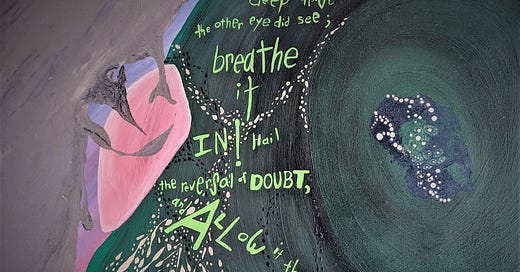 the other eye did see;
breathe
it
IN! Hail
the reversal of DOUBT,
and
ALLOW it th